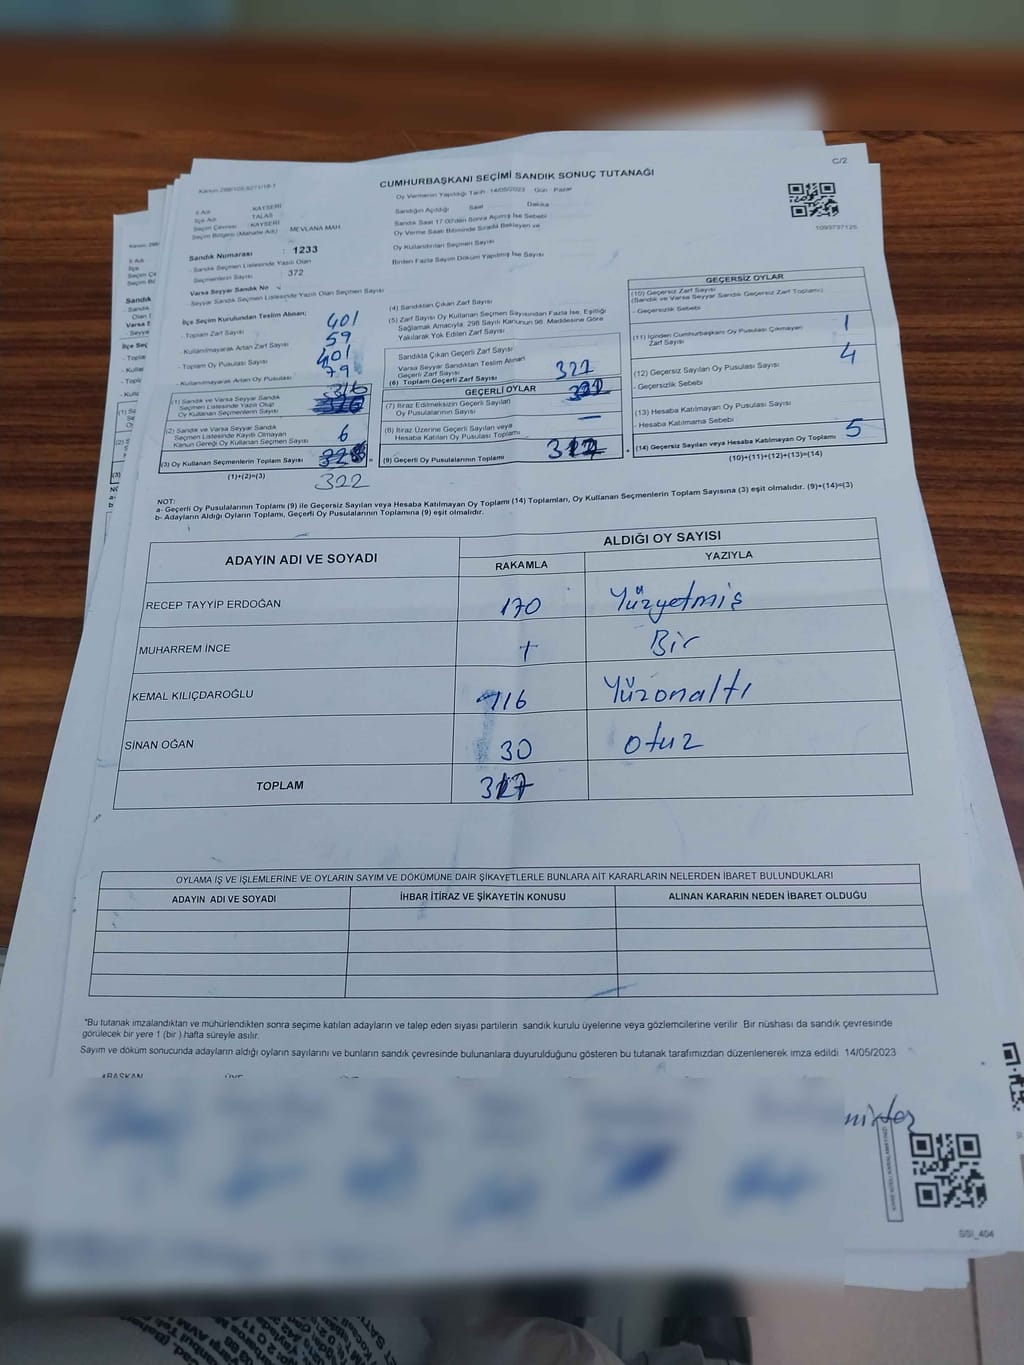 C/2
CUMHURBAŞKANI SEÇİMİ SANDIK SONUÇ TUTANAĞI
Oy Vermenin Yapıldığı Tarih : 14/05/2023 Gün : Pazar
1093737125
İl Adı : KAYSERİ
İlçe Adı : TALAS
Seçim Çevresi : KAYSERİ
Seçim Bölgesi (Mahalle Adı) : MEVLANA MAH.
Sandık Numarası : 1233
- Sandık Seçmen Listesinde Yazılı Olan
Seçmenlerin Sayısı : 372
Varsa Seyyar Sandık No
- Seyyar Sandık Seçmen Listesinde Yazılı Olan Seçmen Sayısı
Sandığın Açıldığı Saat Dakika
Sandık Saat 17:00'den Sonra Açılmış İse Sebebi
Oy Verme Saati Bitiminde Sırada Bekleyen ve
Oy Kullandırılan Seçmen Sayısı
Birden Fazla Sayım Döküm Yapılmış İse Sayısı
İlçe Seçim Kurulundan Teslim Alınan;
- Toplam Zarf Sayısı 401
- Kullanılmayarak Artan Zarf Sayısı 59
- Toplam Oy Pusulası Sayısı 401
- Kullanılmayarak Artan Oy Pusulası 79
316
(1) Sandık ve Varsa Seyyar Sandık
Seçmen Listesinde Yazılı Olup
Oy Kullanan Seçmenlerin Sayısı
(2) Sandık ve Varsa Seyyar Sandık
Seçmen Listesinde Kayıtlı Olmayan
Kanun Gereği Oy Kullanan Seçmen Sayısı 6
(3) Oy Kullanan Seçmenlerin Toplam Sayısı
(1)+(2)=(3) 322
(4) Sandıktan Çıkan Zarf Sayısı
(5) Zarf Sayısı Oy Kullanan Seçmen Sayısından Fazla İse, Eşitliği
Sağlamak Amacıyla, 298 Sayılı Kanunun 98. Maddesine Göre
Yakılarak Yok Edilen Zarf Sayısı
Sandıkta Çıkan Geçerli Zarf Sayısı
Varsa Seyyar Sandıktan Teslim Alınan
Geçerli Zarf Sayısı
(6) Toplam Geçerli Zarf Sayısı 322
GEÇERLİ OYLAR
(7) İtiraz Edilmeksizin Geçerli Sayılan
Oy Pusulalarının Sayısı
(8) İtiraz Üzerine Geçerli Sayılan veya
Hesaba Katılan Oy Pusulası Toplamı —
(9) Geçerli Oy Pusulalarının Toplamı 317
GEÇERSİZ OYLAR
(10) Geçersiz Zarf Sayısı
(Sandık ve Varsa Seyyar Sandık Geçersiz Zarf Toplamı)
- Geçersizlik Sebebi
(11) İçinden Cumhurbaşkanı Oy Pusulası Çıkmayan
Zarf Sayısı 1
(12) Geçersiz Sayılan Oy Pusulası Sayısı 4
- Geçersizlik Sebebi
(13) Hesaba Katılmayan Oy Pusulası Sayısı
- Hesaba Katılmama Sebebi
(14) Geçersiz Sayılan veya Hesaba Katılmayan Oy Toplamı 5
(10)+(11)+(12)+(13)=(14)
NOT:
a- Geçerli Oy Pusulalarının Toplamı (9) ile Geçersiz Sayılan veya Hesaba Katılmayan Oy Toplamı (14) Toplamları, Oy Kullanan Seçmenlerin Toplam Sayısına (3) eşit olmalıdır. (9)+(14)=(3)
b- Adayların Aldığı Oyların Toplamı, Geçerli Oy Pusulalarının Toplamına (9) eşit olmalıdır.
ADAYIN ADI VE SOYADI ALDIĞI OY SAYISI
RAKAMLA YAZIYLA
RECEP TAYYİP ERDOĞAN 170 Yüzyetmiş
MUHARREM İNCE 1 Bir
KEMAL KILIÇDAROĞLU 116 Yüzonaltı
SİNAN OĞAN 30 otuz
TOPLAM 317
OYLAMA İŞ VE İŞLEMLERİNE VE OYLARIN SAYIM VE DÖKÜMÜNE DAİR ŞİKAYETLERLE BUNLARA AİT KARARLARIN NELERDEN İBARET BULUNDUKLARI
ADAYIN ADI VE SOYADI İHBAR İTİRAZ VE ŞİKAYETİN KONUSU ALINAN KARARIN NEDEN İBARET OLDUĞU
*Bu tutanak imzalandıktan ve mühürlendikten sonra seçime katılan adayların ve talep eden siyasi partilerin sandık kurulu üyelerine veya gözlemcilerine verilir Bir nüshası da sandık çevresinde
görülecek bir yere 1 (bir ) hafta süreyle asılır.
Sayım ve döküm sonucunda adayların aldığı oyların sayılarını ve bunların sandık çevresinde bulunanlara duyurulduğunu gösteren bu tutanak tarafımızdan düzenlenerek imza edildi 14/05/2023
BAŞKAN ÜYE
SSI_404